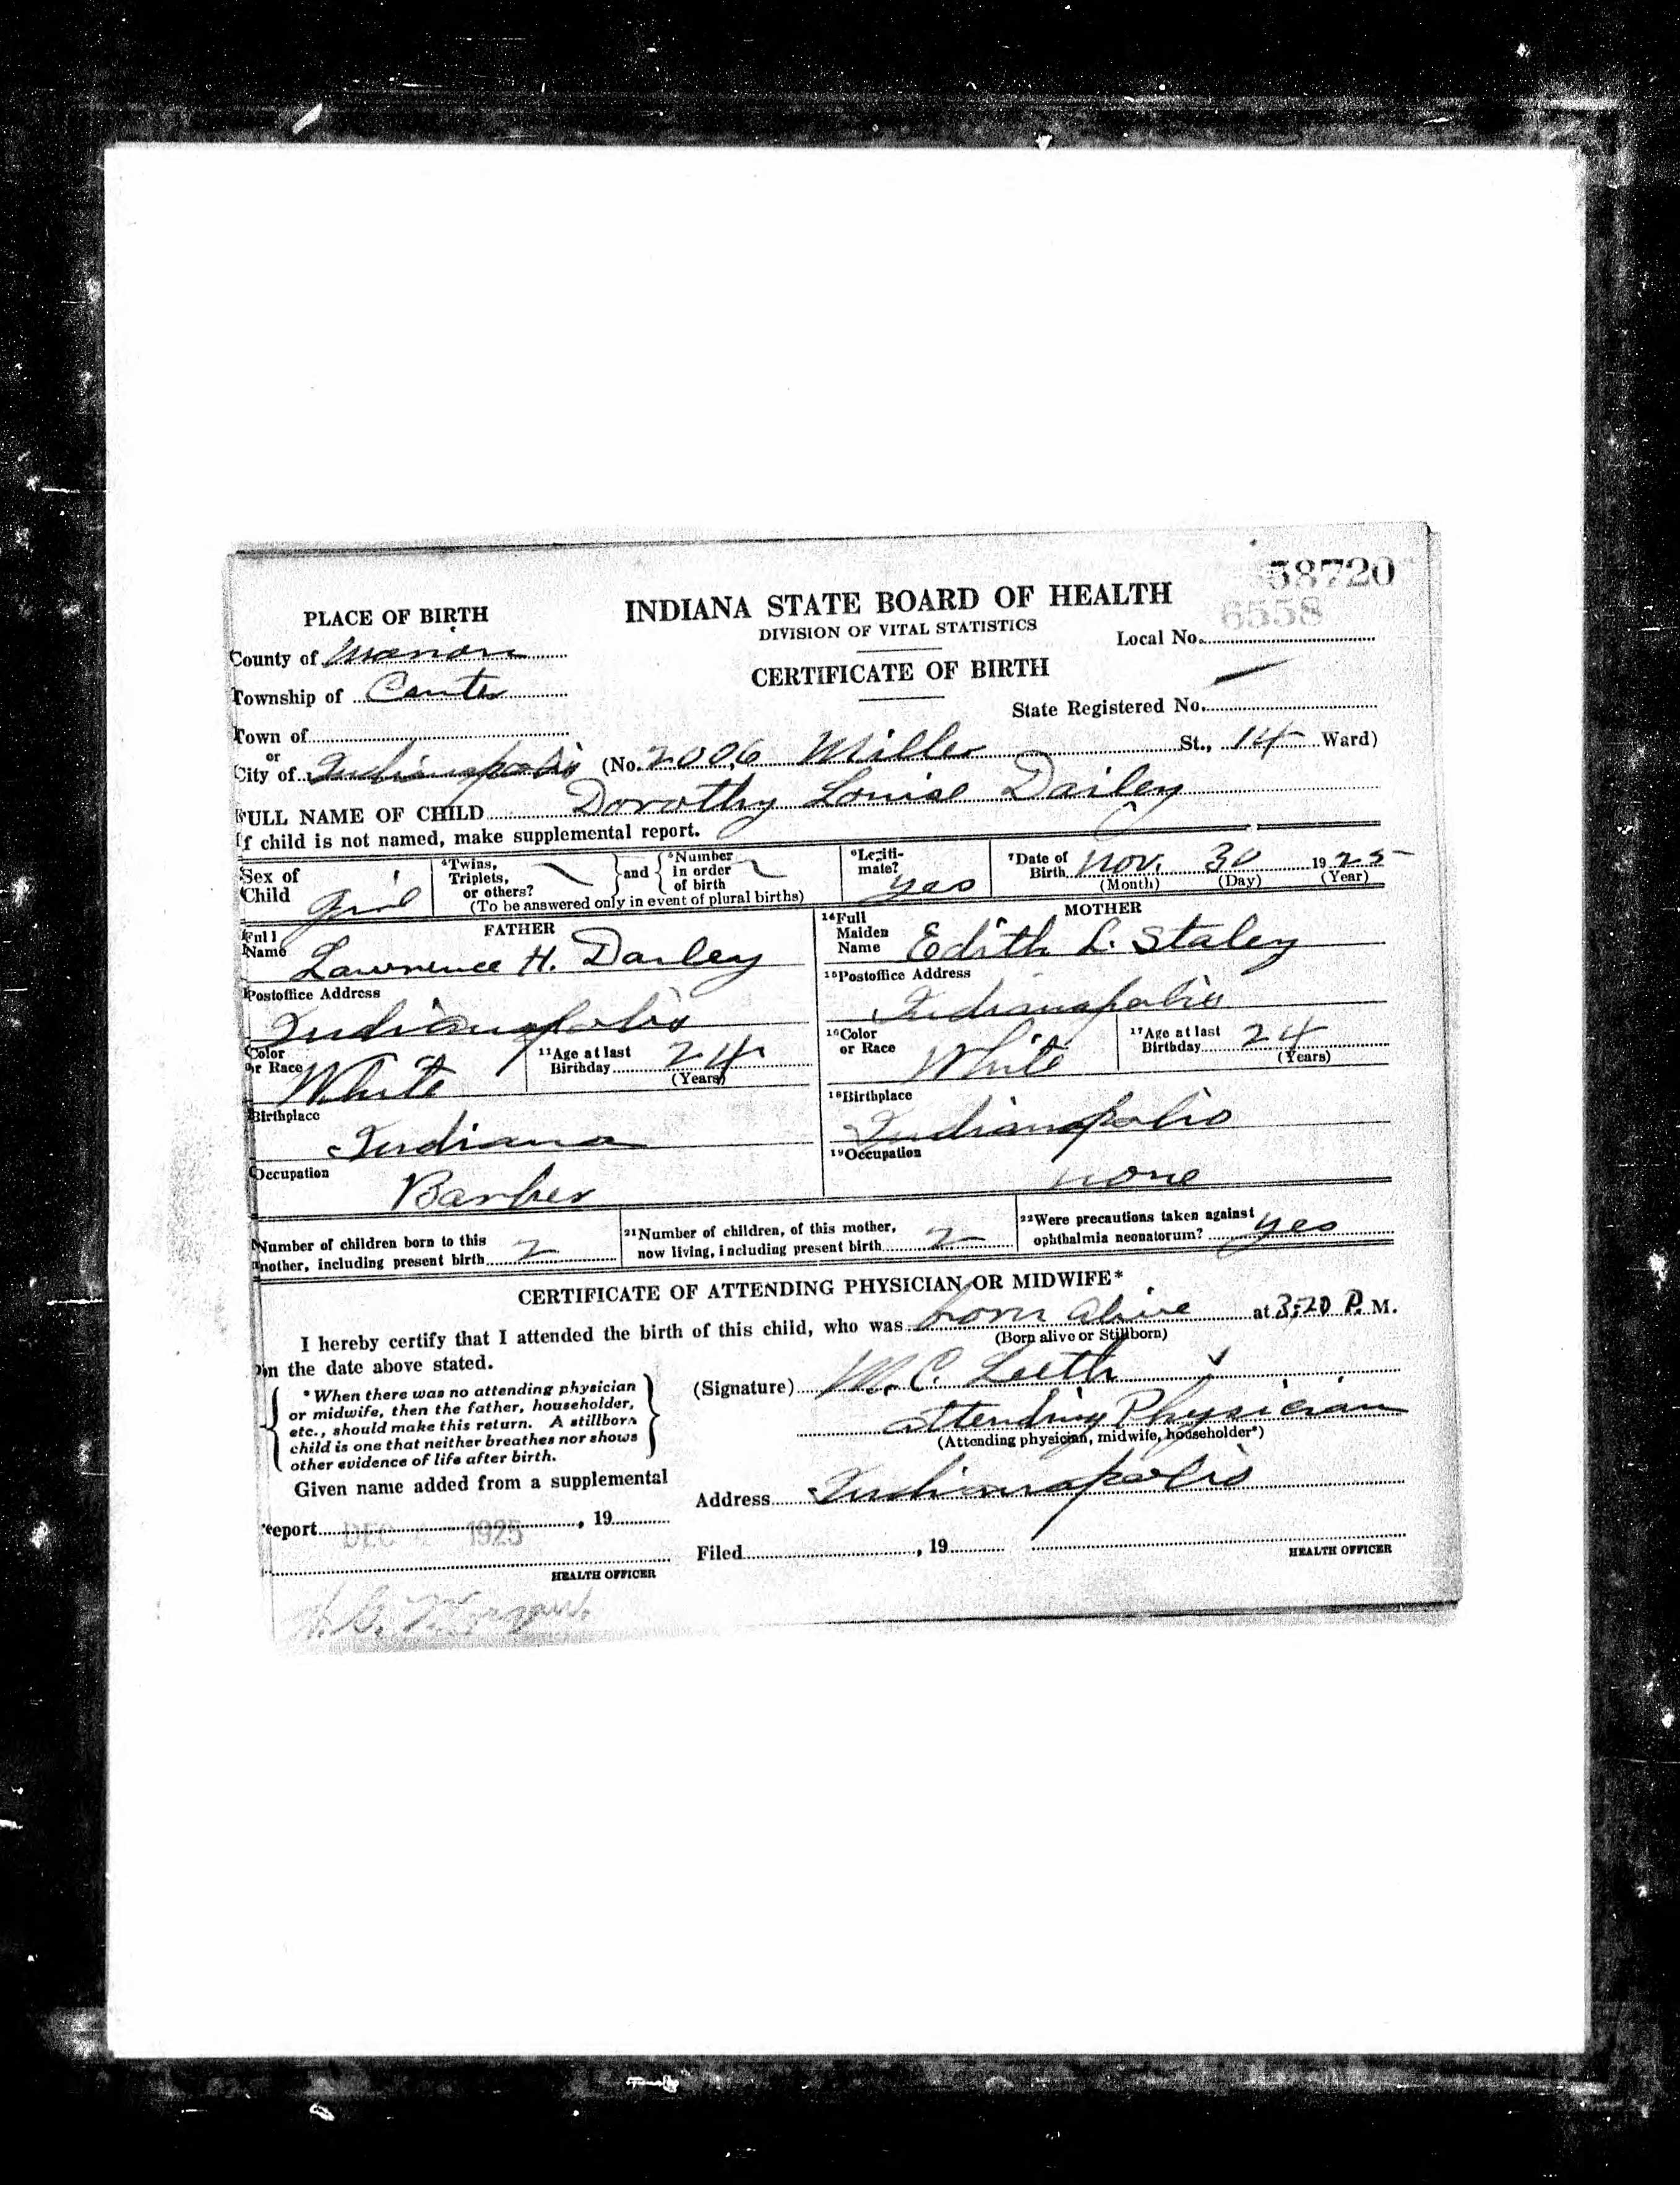 58720
6558
PLACE OF BIRTH
INDIANA STATE BOARD OF HEALTH
DIVISION OF VITAL STATISTICS
Local No.
County of Marion
CERTIFICATE OF BIRTH
Township of Center
State Registered No.
Town of
or
City of Indianapolis (No. 2006 Miller St., 14 Ward)
FULL NAME OF CHILD Dorothy Louise Dailey
If child is not named, make supplemental report.
Sex of Child Girl
4Twins, Triplets, or others? } and { 5Number in order of birth
(To be answered only in event of plural births)
6Legiti-mate? yes
7Date of Birth Nov. 30 1925
(Month) (Day) (Year)
FATHER
Full Name Lawrence H. Dailey
Postoffice Address
Indianapolis
Color or Race White
11Age at last Birthday 24
(Years)
Birthplace
Indiana
Occupation
Barber
MOTHER
14Full Maiden Name Edith L. Staley
15Postoffice Address
Indianapolis
16Color or Race White
17Age at last Birthday 24
(Years)
18Birthplace
Indianapolis
19Occupation
none
Number of children born to this mother, including present birth 2
21Number of children, of this mother, now living, including present birth 2
22Were precautions taken against ophthalmia neonatorum? yes
CERTIFICATE OF ATTENDING PHYSICIAN OR MIDWIFE*
I hereby certify that I attended the birth of this child, who was born alive at 3:20 P. M.
(Born alive or Stillborn)
on the date above stated.
* When there was no attending physician
or midwife, then the father, householder,
etc., should make this return. A stillborn
child is one that neither breathes nor shows
other evidence of life after birth.
(Signature) M. C. Leeth
attending Physician
(Attending physician, midwife, householder*)
Given name added from a supplemental
Address Indianapolis
report, 19
DEC 1925
Filed, 19
HEALTH OFFICER
HEALTH OFFICER